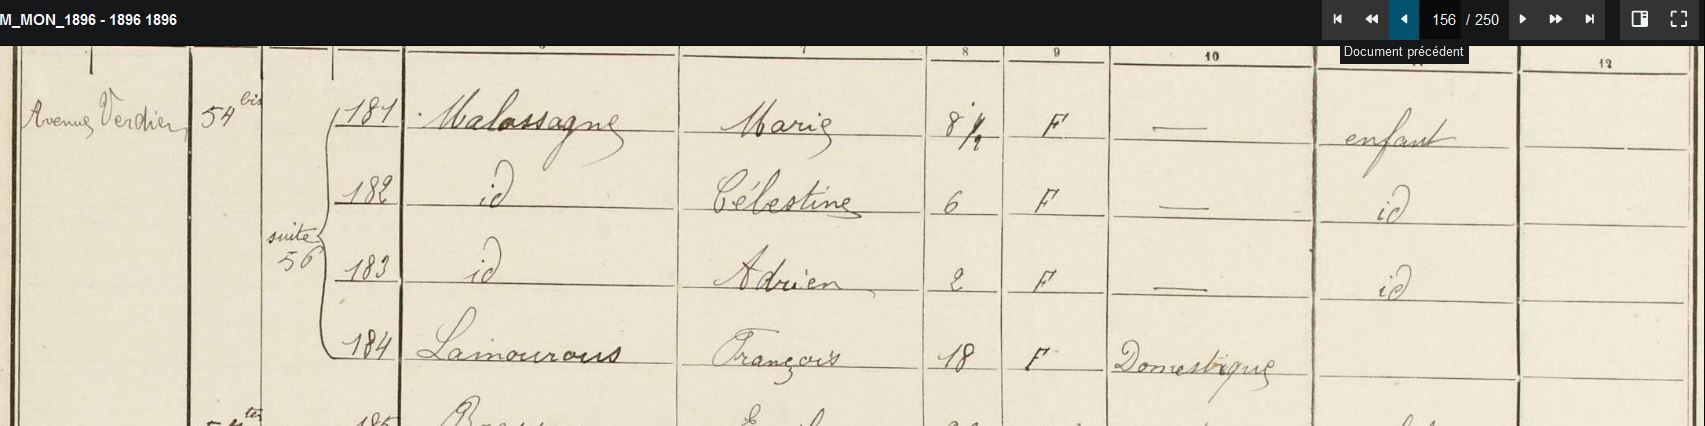 M_MON_1896 - 1896 1896
156 / 250
Document précédent
7 8 9 10 12
Avenue Verdier 54 bis 181 Malassagne Marie 8 1/2 F — enfant
182 id Célestine 6 F — id
suite
56
183 id Adrien 2 F — id
184 Lamourous François 18 F Domestique
ter 185